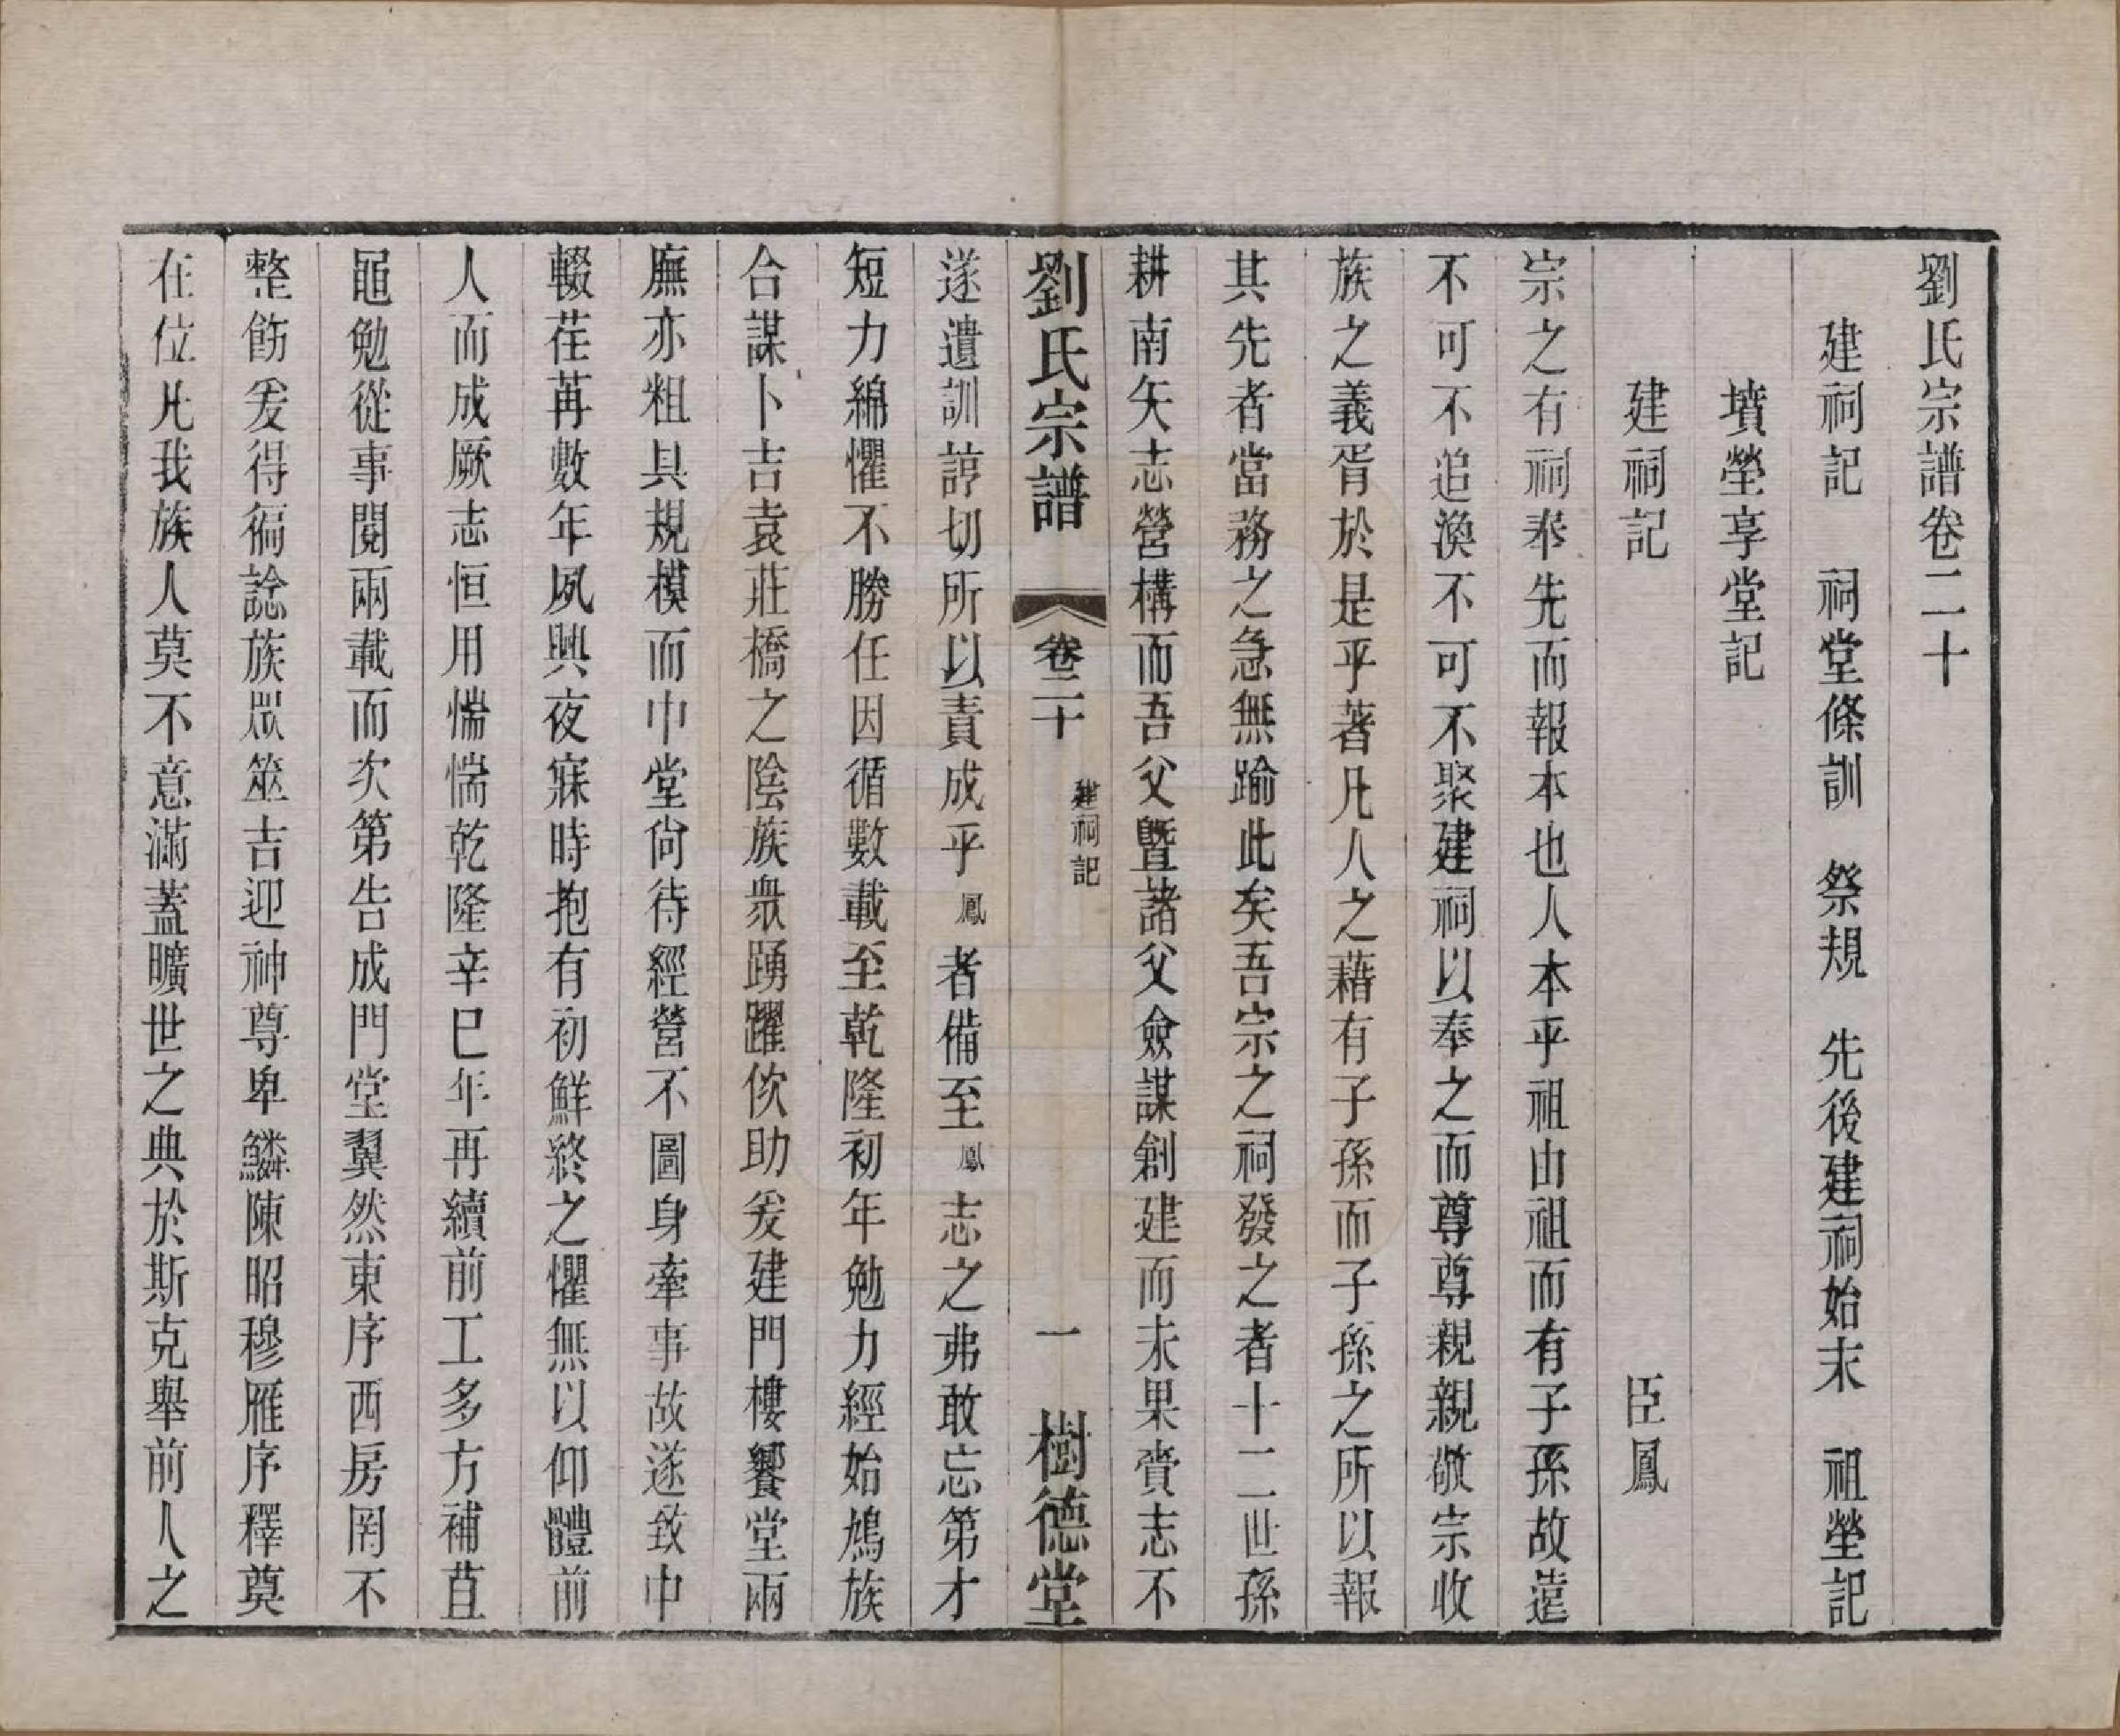 劉氏宗譜卷二十
建祠記　祠堂條訓　祭規　先後建祠始末　祖塋記
墳塋享堂記
建祠記　臣鳳
宗之有祠奉先而報本也人本乎祖由祖而有子孫故遠
不可不追渙不可不聚建祠以奉之而尊尊親親敬宗收
族之義胥於是乎著凡人之藉有子孫而子孫之所以報
其先者當務之急無踰此矣吾宗之祠發之者十二世孫
耕南矢志營構而吾父曁諸父僉謀創建而未果賫志不
劉氏宗譜　卷二十　建祠記　一　樹德堂
遂遺訓諄切所以責成乎鳳者備至鳳志之弗敢忘第才
短力綿懼不勝任因循數載至乾隆初年勉力經始鳩族
合謀卜吉袁莊橋之陰族衆踴躍佽助爰建門樓饗堂兩
廡亦粗具規模而中堂尙待經營不圖身牽事故遂致中
輟荏苒數年夙興夜寐時抱有初鮮終之懼無以仰體前
人而成厥志恒用惴惴乾隆辛巳年再續前工多方補苴
黽勉從事閱兩載而次第告成門堂翼然東序西房罔不
整飭爰得徧諗族眾筮吉迎神尊卑鱗陳昭穆雁序釋奠
在位凡我族人莫不意滿蓋曠世之典於斯克舉前人之